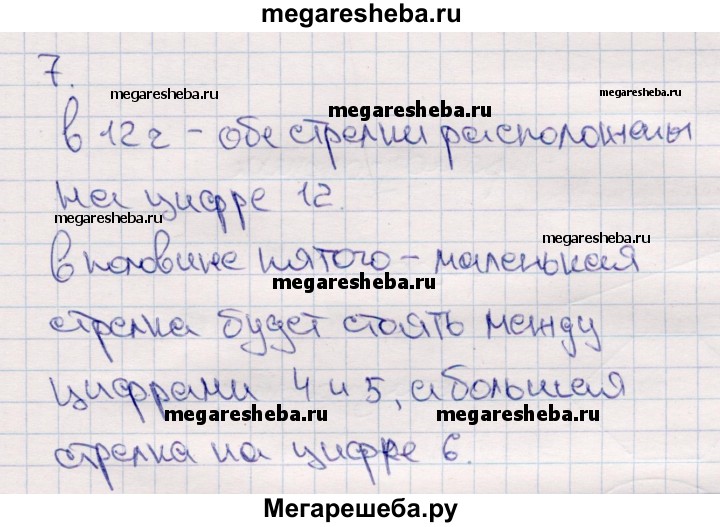 megaresheba.ru
7.
megaresheba.ru
megaresheba.ru
megaresheba.ru
в 12 ч - обе стрелки расположены
на цифре 12.
megaresheba.ru
megaresheba.ru
в половине пятого - маленькая
megaresheba.ru
стрелка будет стоять между
цифрами 4 и 5, а большая
megaresheba.ru
megaresheba.ru
стрелка на цифре 6.
Мегарешеба.ру